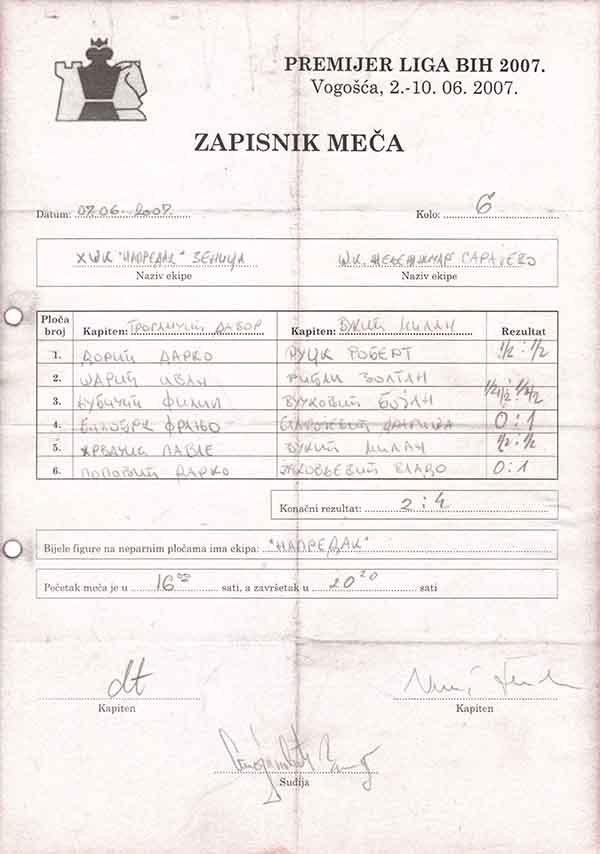 PREMIJER LIGA BIH 2007.
Vogošća, 2.-10. 06. 2007.
ZAPISNIK MEČA
Datum: 07.06.2007. Kolo: 6
ХШК "НАПРЕДАК" ЗЕНИЦА ШК. МЕНАЏМАР САРАЈЕВО
Naziv ekipe Naziv ekipe
Ploča broj Kapiten: ДАВОР Kapiten: ВУКИЋ МИЛАН Rezultat
1. ДОРИЋ ДАРКО РУЦК РОБЕРТ 1/2 : 1/2
2. ШАРИЋ ИВАН РИБЛИ ЗОЛТАН
3. ФИЛИП ВУЧКОВИЋ БОЈАН 1/2 : 1/2
4. ФРАЊО 0 : 1
5. ХРВАЧИЋ ПАВЛЕ ВУКИЋ МИЛАН 1/2 : 1/2
6. ПОПОВИЋ ДАРКО ЈАКОВЉЕВИЋ ВЛАДО 0 : 1
Konačni rezultat: 2 : 4
Bijele figure na neparnim pločama ima ekipa: "НАПРЕДАК"
Početak meča je u 16 00 sati, a završetak u 20 20 sati
Kapiten Kapiten
Sudija